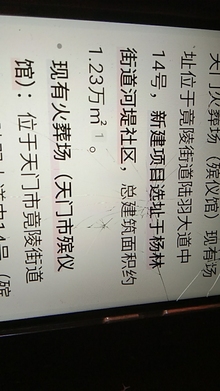 天门火葬场（殡仪馆）现有场
址位于竟陵街道陆羽大道中
14号，新建项目选址于杨林
街道河堤社区，总建筑面积约
1.23万m² 1 。
• 现有火葬场（天门市殡仪
馆）：位于天门市竟陵街道
14号（殡